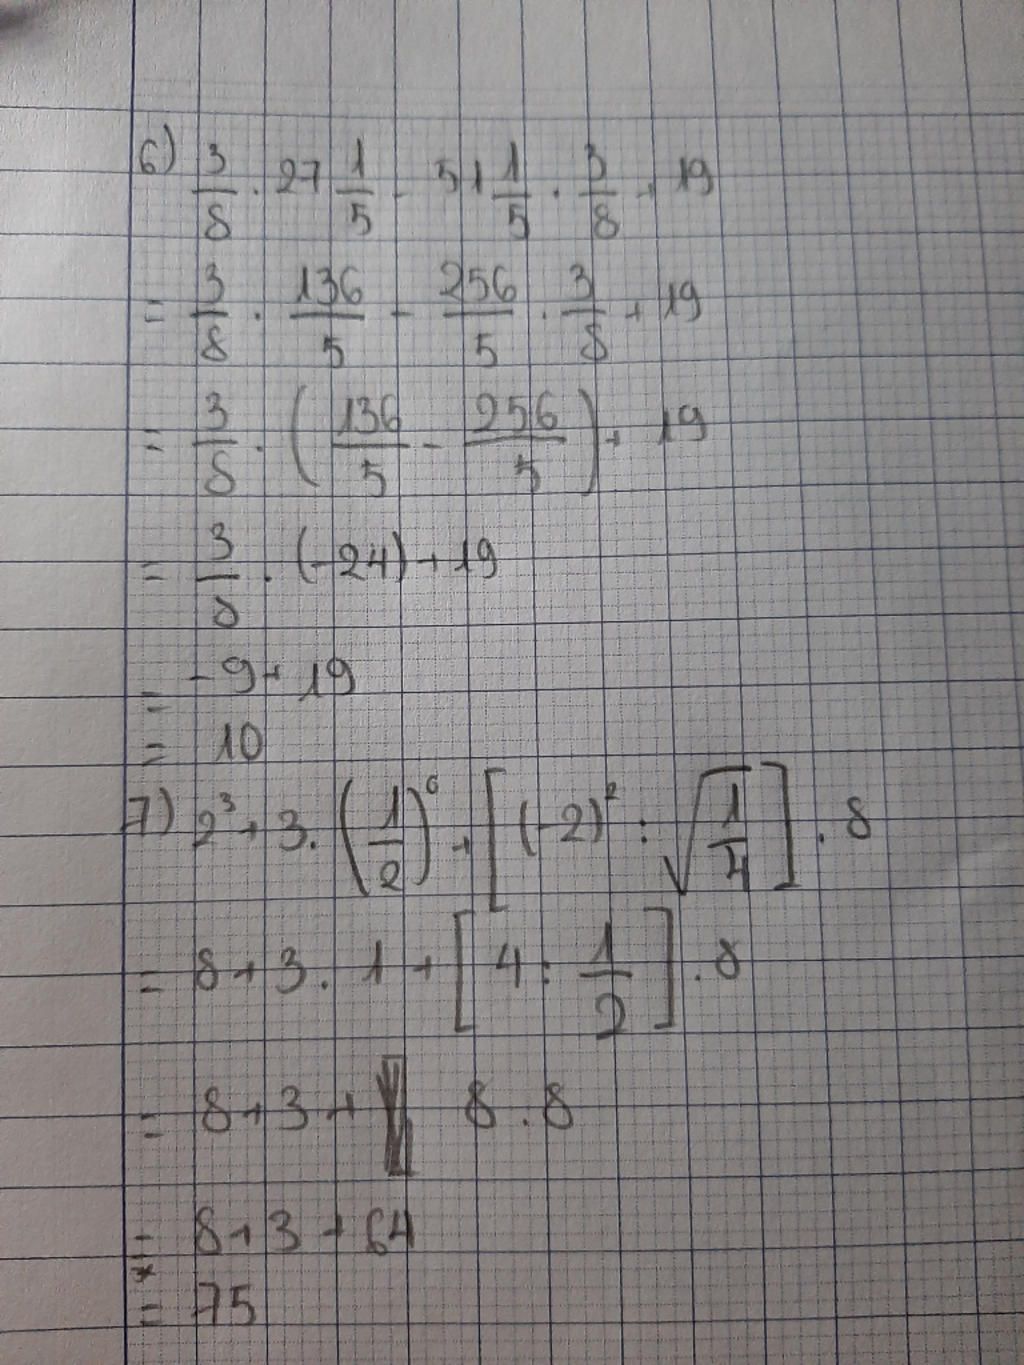 6) 3/8 . 27 1/5 - 51 1/5 . 3/8 + 19
= 3/8 . 136/5 - 256/5 . 3/8 + 19
= 3/8 . (136/5 - 256/5) + 19
= 3/8 . (-24) + 19
= -9 + 19
= 10
7) 2³ + 3 . (1/2)⁰ + [(-2)² : √(1/4)] . 8
= 8 + 3 . 1 + [4 : 1/2] . 8
= 8 + 3 + 8 . 8
= 8 + 3 + 64
= 75